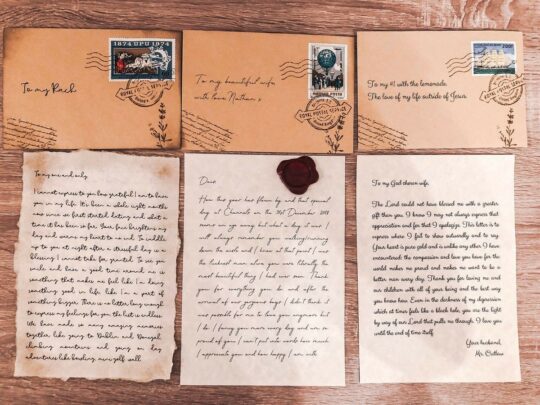 1874 UPU 1974
To my Paid
To my beautiful wife,
with love Nathan x
ROYAL POSTAL SERVICE
To my #1 with the lemonade.
The love of my life outside of Jesus.
ROYAL POSTAL SERVICE
To my one and only,
I cannot express to you how grateful I am to have
you in my life. It's been a whole eight months
now since we first started dating and what a
time it has been so far. Your face brightens my
day and warms my heart to no end. To cuddle
up to you at night after a stressful day is a
blessing I cannot take for granted. To see you
smile and have a good time around me is
something that makes me feel like I'm doing
something good in life, like I'm a part of
something bigger. There is no letter long enough
to express my feelings for you, the list is endless.
We have made so many amazing memories
together like going to Dublin and Donegal
climbing mountains and going on day
adventures like
Dear,
How this year has flown by and that special
day at
never once in my
always remember your walking/running
down the aisle and I knew at that point I was
the luckiest man alive you were literally the
most beautiful thing I had ever seen. Thank
you for everything you do and after the
arrival of our gorgeous boys, I didn't think it
was possible for me to love you anymore but
I do, I fancy you more every day and am so
proud of you I can't put into words how much
I appreciate you and how happy I am with
To my God chosen wife,
The Lord could not have blessed me with a greater
gift than you. I know I may not always express that
appreciation and for that I apologize. This letter is to
express where I fail to show outwardly and to say
Your heart is pure gold and is unlike any other I have
encountered; the compassion and love you have for the
world makes me proud and makes me want to be a
better man every day. Thank you for loving me and
our children with all of your being and the best way
you know how. Even in the darkness of my depression
which at times feels like a black hole, you are the light
by way of our Lord that pulls me through. I love you
until the end of time itself.
Your husband,
Mr.